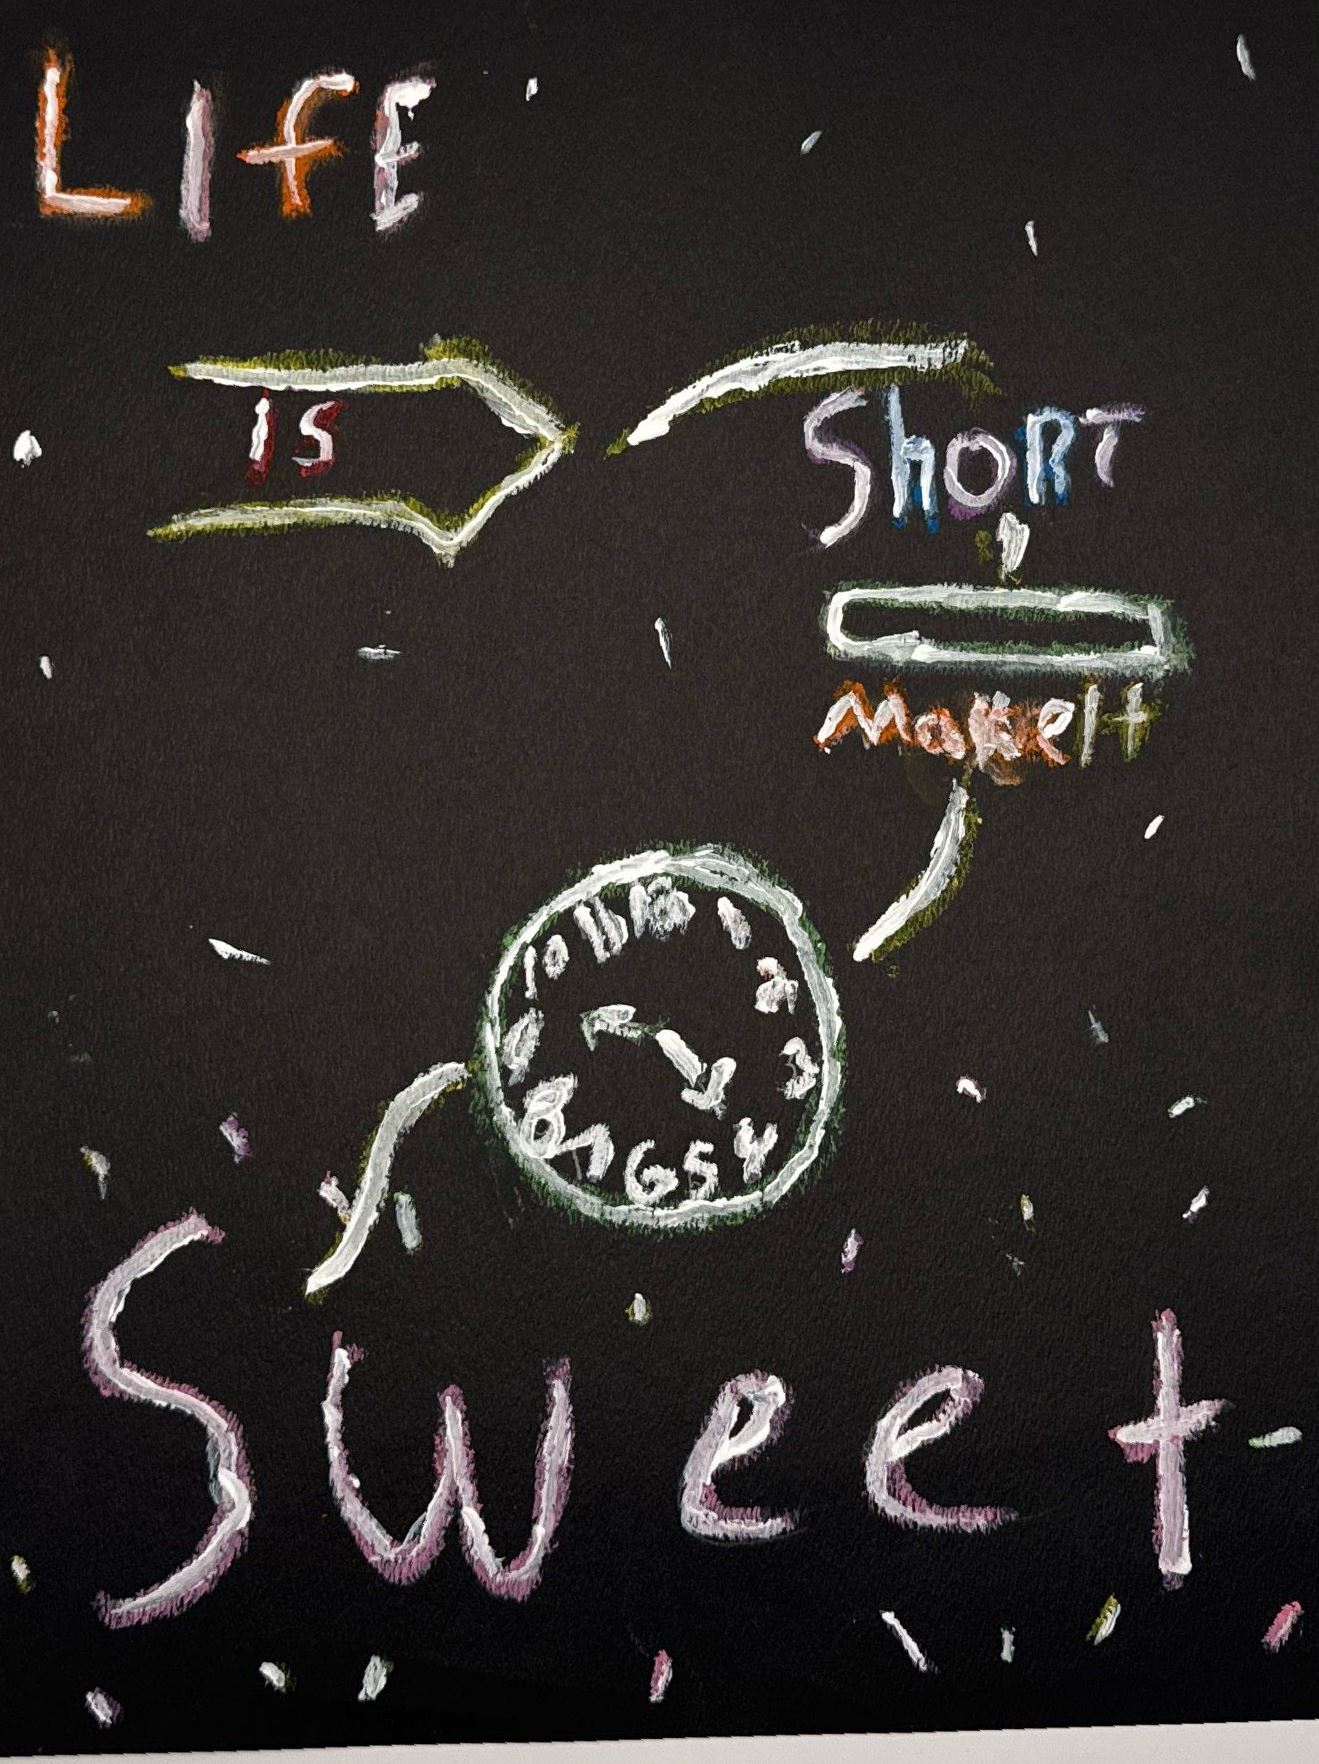 LIfE
Is
ShoRT
,
MakeIt
12
1
2
3
4
5
6
7
8
10
11
Sweet